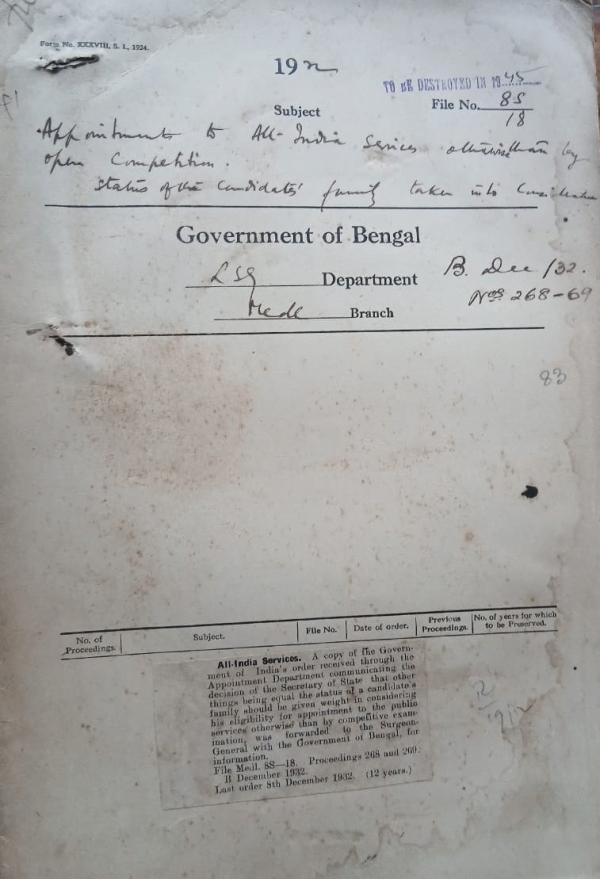 Form No. XXXVIII, S. I., 1924.
19
TO BE DESTROYED IN 1945
Subject
File No. 8S
18
Appointments to All-India Services otherwise than by
open Competition.
Status of the Candidates' family taken into Consideration
Government of Bengal
LSG Department
B. Dec/32.
Nos 268-69
Medl Branch
83
No. of Proceedings.
Subject.
File No.
Date of order.
Previous Proceedings.
No. of years for which to be Preserved.
All-India Services. A copy of the Govern-
ment of India's order received through the
Appointment Department communicating the
decision of the Secretary of State that other
things being equal the status of a candidate's
family should be given weight in considering
his eligibility for appointment to the public
services otherwise than by competitive exam-
ination, was forwarded to the Surgeon-
General with the Government of Bengal, for
information.
File Medl. 8S—18. Proceedings 268 and 269.
B December 1932.
Last order 8th December 1932. (12 years.)